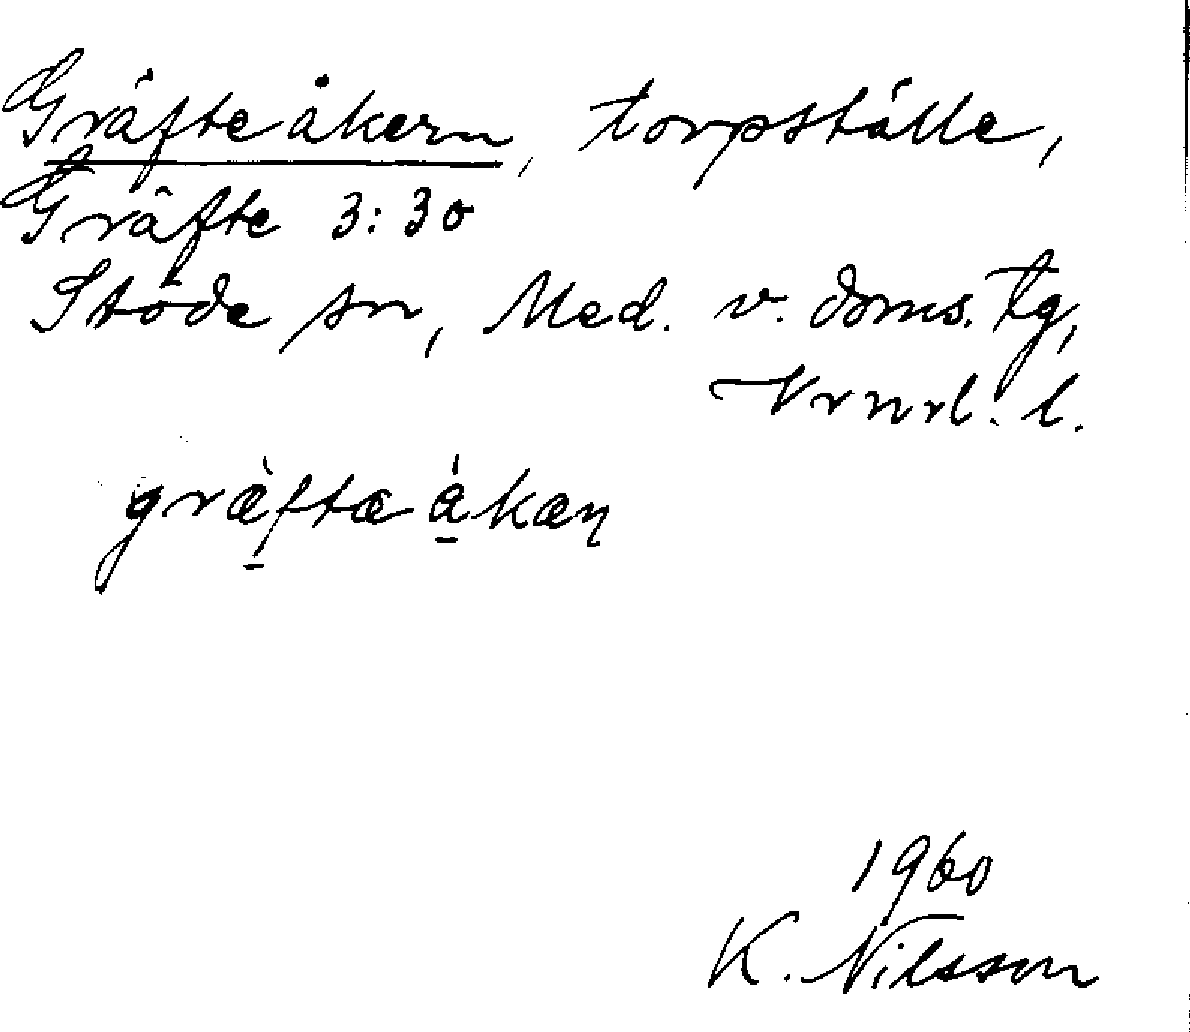 Gräfteåkern, torpställe,
Gräfte 3:30
Stöde sn, Med. v. doms. tg,
Vrnrl. l.
græ̀ftæ åkæn
1960
K. Nilsson